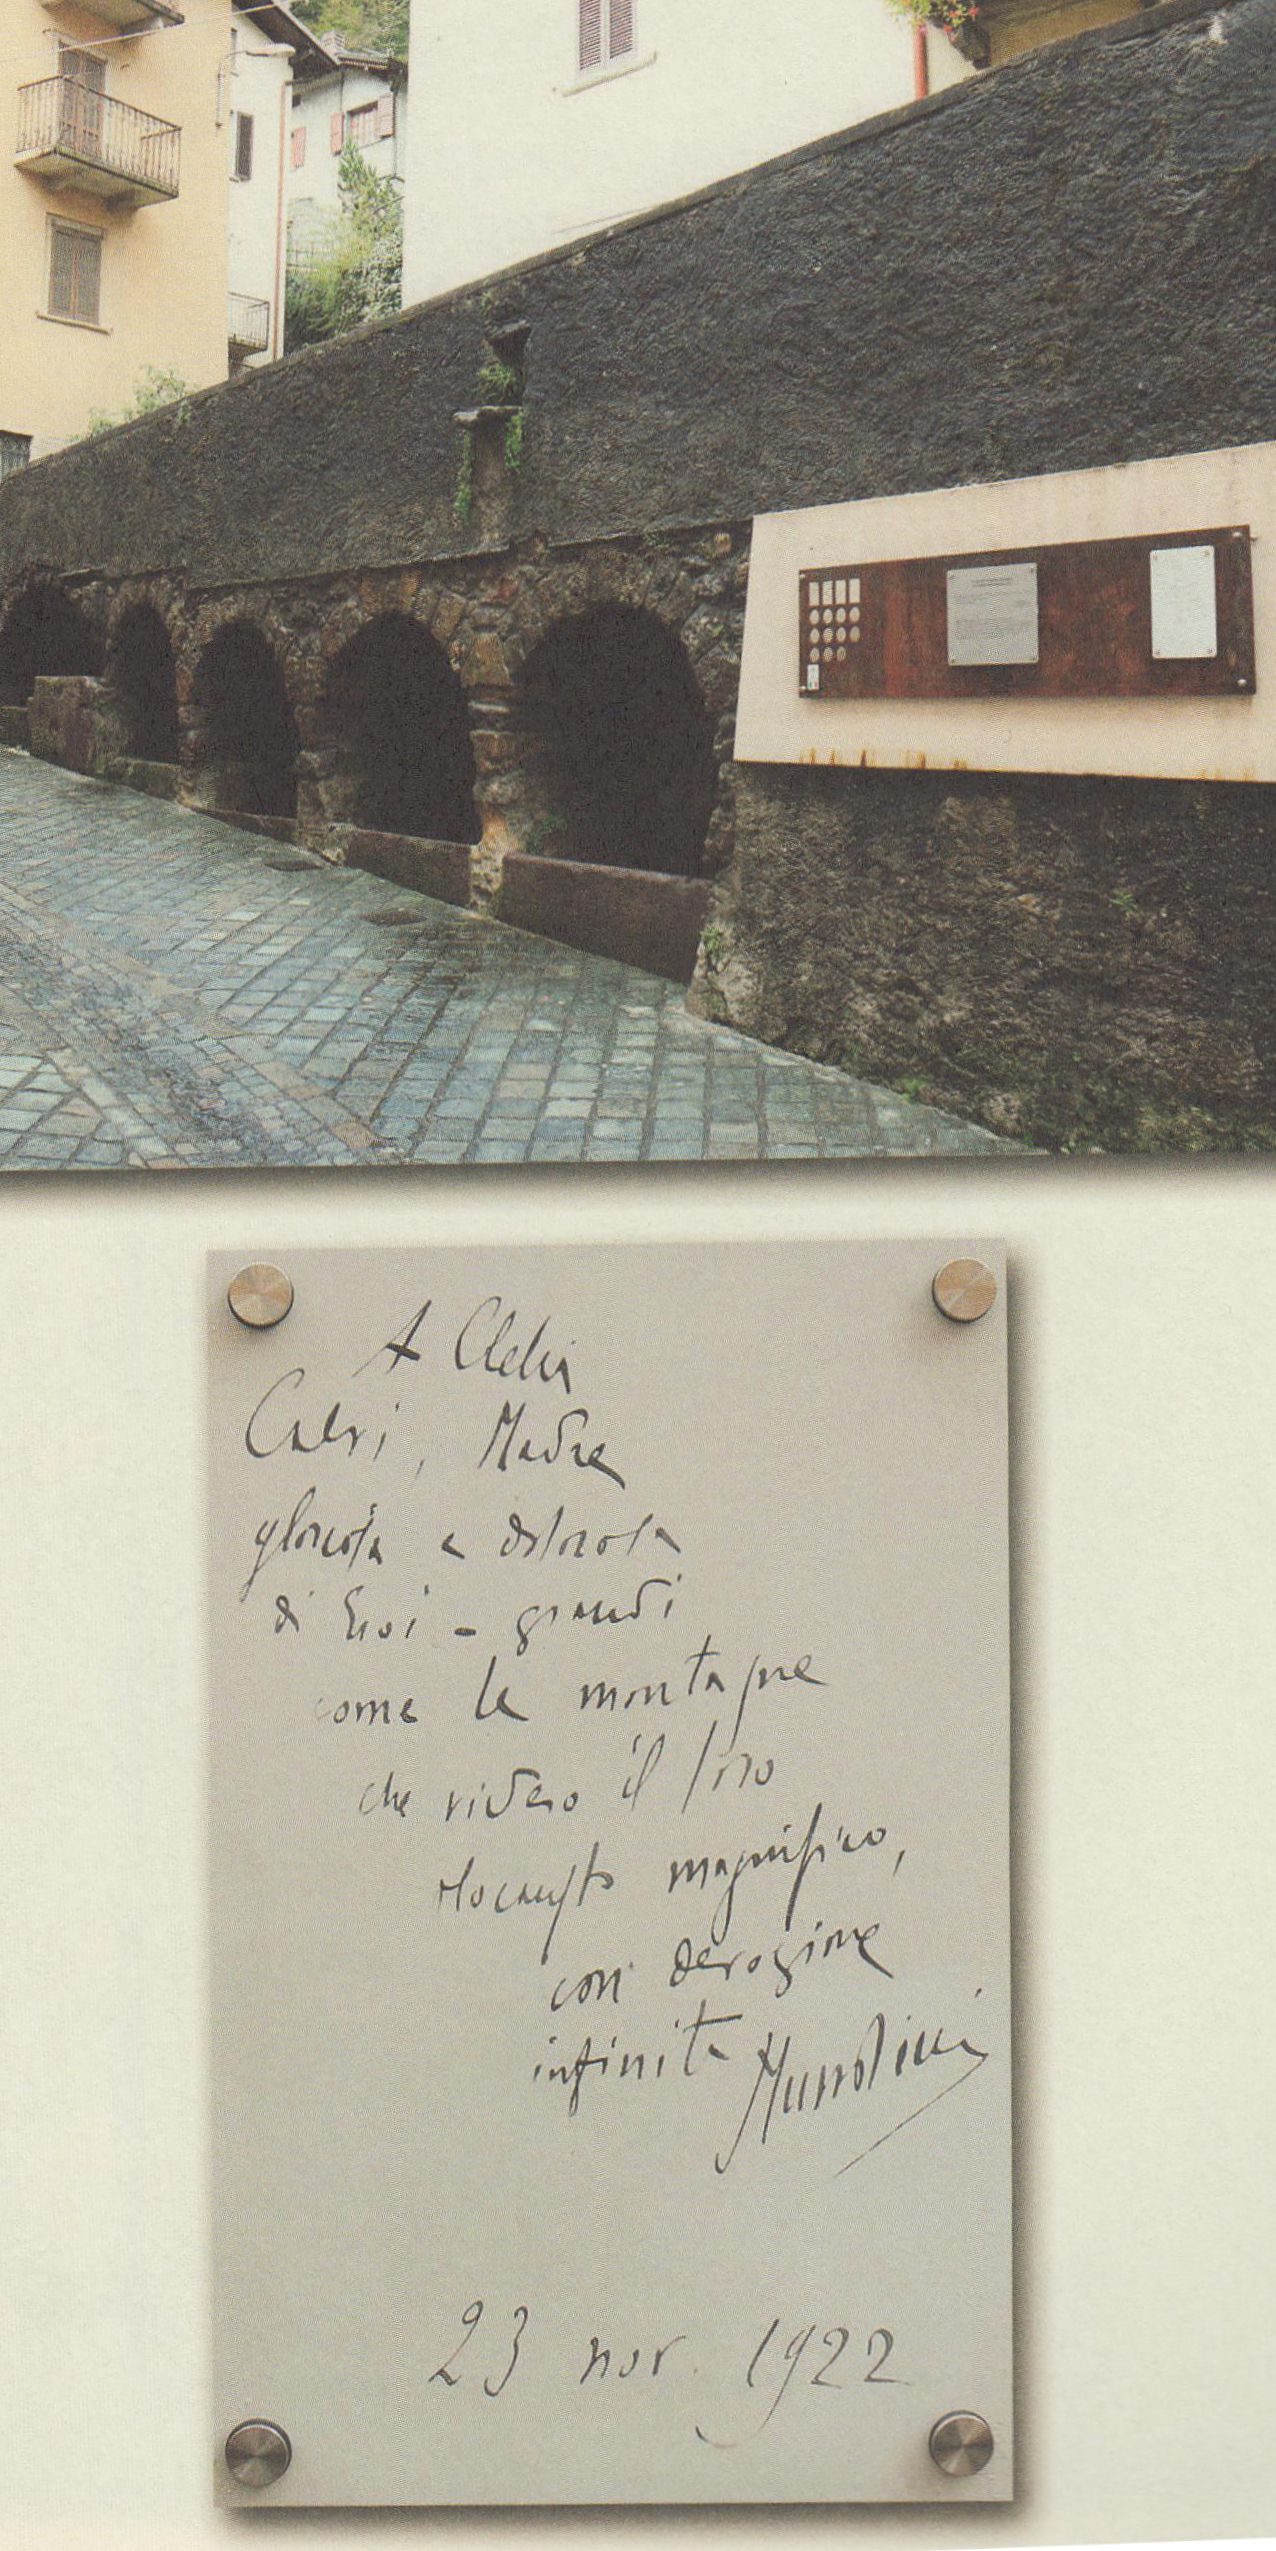 A Clelia
Calvi, Madre
gloriosa e dolorosa
di Eroi - grandi
come le montagne
che videro il loro
olocausto magnifico,
con devozione
infinita Mussolini
23 nov. 1922